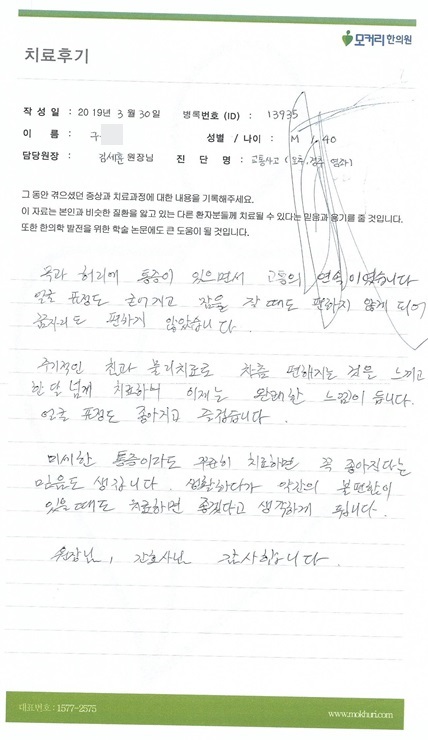 모커리한의원
치료후기
작 성 일 : 2019년 3월 30일 병록번호 (ID) : 13935
이 름 : 구 성별 / 나이 : M / 40
담당원장 : 김세훈 원장님 진 단 명 : 교통사고 (요추, 경추 염좌)
그 동안 겪으셨던 증상과 치료과정에 대한 내용을 기록해주세요.
이 자료는 본인과 비슷한 질환을 앓고 있는 다른 환자분들께 치료될 수 있다는 믿음과 용기를 줄 것입니다.
또한 한의학 발전을 위한 학술 논문에도 큰 도움이 될 것입니다.
목과 허리에 통증이 있으면서 고통의 연속이였습니다
얼굴 표정도 굳어지고 잠을 잘 때도 편하지 않게 되어
잠자리도 편하지 않았습니다.
주기적인 침과 물리치료로 차츰 편해지는 것을 느끼고
한달 넘게 치료하며 이제는 완쾌한 느낌이 듭니다.
얼굴 표정도 좋아지고 즐겁습니다.
미세한 통증이라도 꾸준히 치료하면 꼭 좋아진다는
믿음도 생깁니다. 생활하다가 약간의 불편함이
있을때도 치료하면 좋겠다고 생각하게 됩니다.
원장님, 간호사님 감사합니다.
대표번호 : 1577-2575
www.mokhuri.com